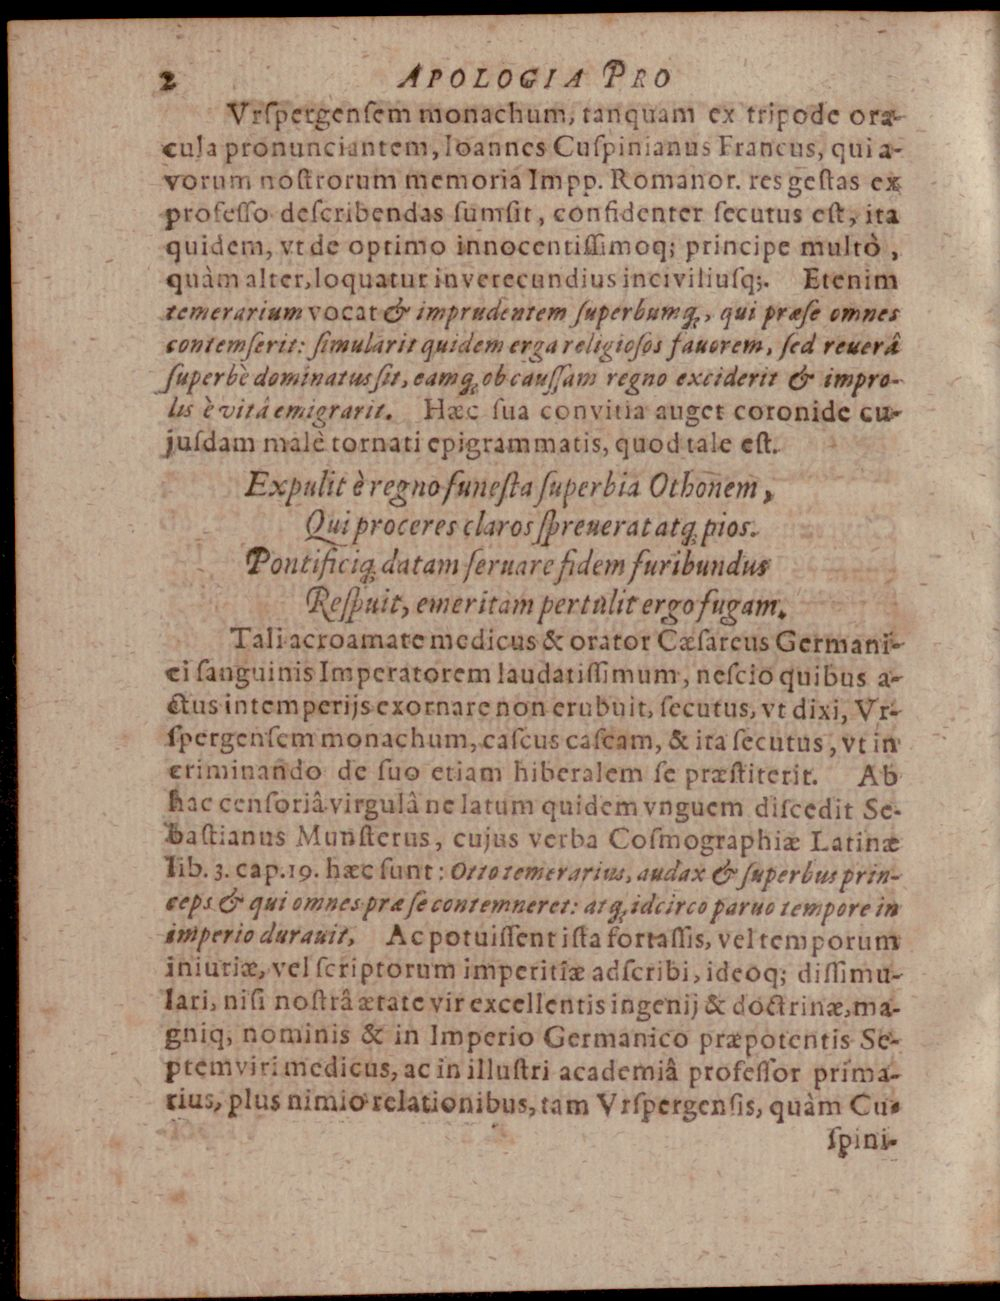 2 APOLOGIA PRO
Vrſpergenſem monachum, tanquam ex tripode ora-
cula pronunciantem, Ioannes Cuſpinianus Francus, qui a-
vorum noſtrorum memoria Impp. Romanor. res geſtas ex
profeſſo deſcribendas ſumſit, confidenter ſecutus eſt, ita
quidem, vt de optimo innocentiſſimoq; principe multò,
quàm alter, loquatur inverecundius inciviliuſq;. Etenim
temerarium vocat & imprudentem ſuperbumq;, qui præ ſe omnes
contemſerit: ſimularit quidem erga religioſos fauorem, ſed reuerâ
ſuperbè dominatus ſit, eamq; ob cauſſam regno exciderit & impro-
lis è vitâ emigrarit. Hæc ſua convitia auget coronide cu-
juſdam malè tornati epigrammatis, quod tale eſt.
Expulit è regno funeſta ſuperbia Othonem,
Qui proceres claros ſpreuerat atq; pios.
Pontificiq; datam ſeruare fidem furibundus
Reſpuit, emeritam pertulit ergo fugam.
Tali acroamate medicus & orator Cæſareus Germani-
ci ſanguinis Imperatorem laudatiſſimum, neſcio quibus a-
ctus intemperijs exornare non erubuit, ſecutus, vt dixi, Vr-
ſpergenſem monachum, caſcus caſcam, & ita ſecutus, vt in
criminando de ſuo etiam hiberalem ſe præſtiterit. Ab
hac cenſoriâ virgulâ ne latum quidem vnguem diſcedit Se-
baſtianus Munſterus, cujus verba Coſmographiæ Latinæ
lib. 3. cap. 19. hæc ſunt: Otto temerarius, audax & ſuperbus prin-
ceps & qui omnes præ ſe contemneret: atq; idcirco paruo tempore in
imperio durauit, Ac potuiſſent iſta fortaſſis, vel temporum
iniuriæ, vel ſcriptorum imperitiæ adſcribi, ideoq; diſſimu-
lari, niſi noſtrâ ætate vir excellentis ingenij & doctrinæ, ma-
gniq, nominis & in Imperio Germanico præpotentis Se-
ptemviri medicus, ac in illuſtri academiâ profeſſor prima-
rius, plus nimio relationibus, tam Vrſpergenſis, quàm Cu-
ſpini-